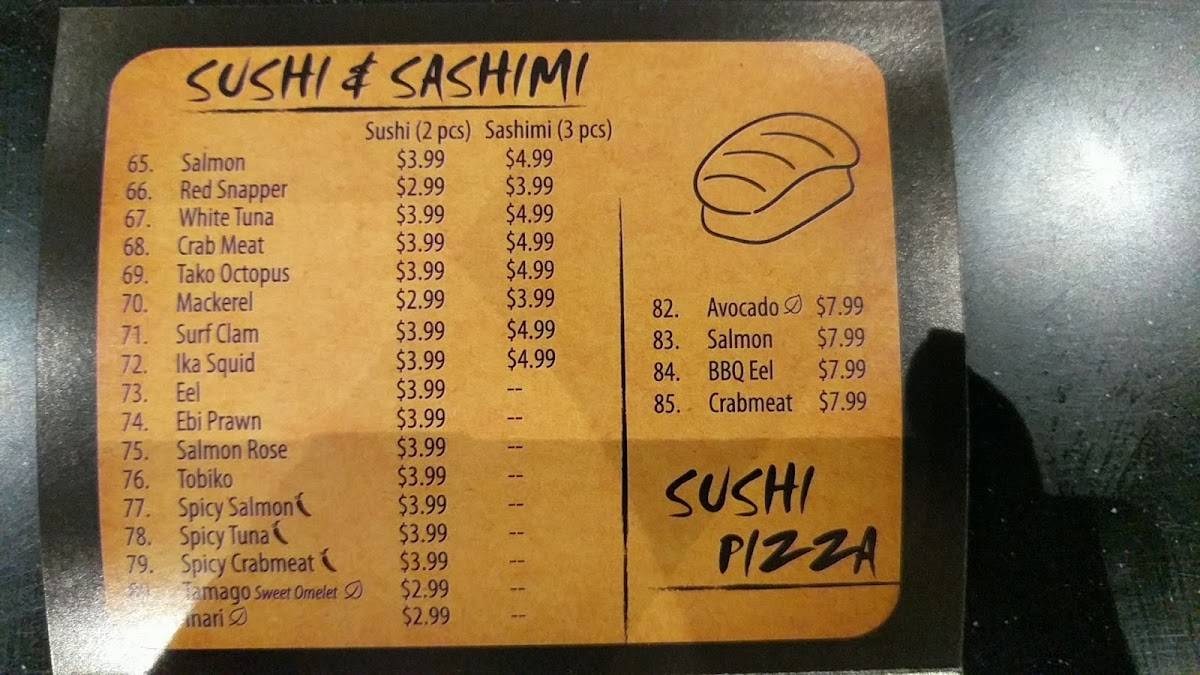 SUSHI & SASHIMI
Sushi (2 pcs) Sashimi (3 pcs)
65. Salmon $3.99 $4.99
66. Red Snapper $2.99 $3.99
67. White Tuna $3.99 $4.99
68. Crab Meat $3.99 $4.99
69. Tako Octopus $3.99 $4.99
70. Mackerel $2.99 $3.99
71. Surf Clam $3.99 $4.99
72. Ika Squid $3.99 $4.99
73. Eel $3.99 --
74. Ebi Prawn $3.99 --
75. Salmon Rose $3.99 --
76. Tobiko $3.99 --
77. Spicy Salmon $3.99 --
78. Spicy Tuna $3.99 --
79. Spicy Crabmeat $3.99 --
80. Tamago Sweet Omelet $2.99 --
Inari $2.99 --
82. Avocado $7.99
83. Salmon $7.99
84. BBQ Eel $7.99
85. Crabmeat $7.99
SUSHI
PIZZA